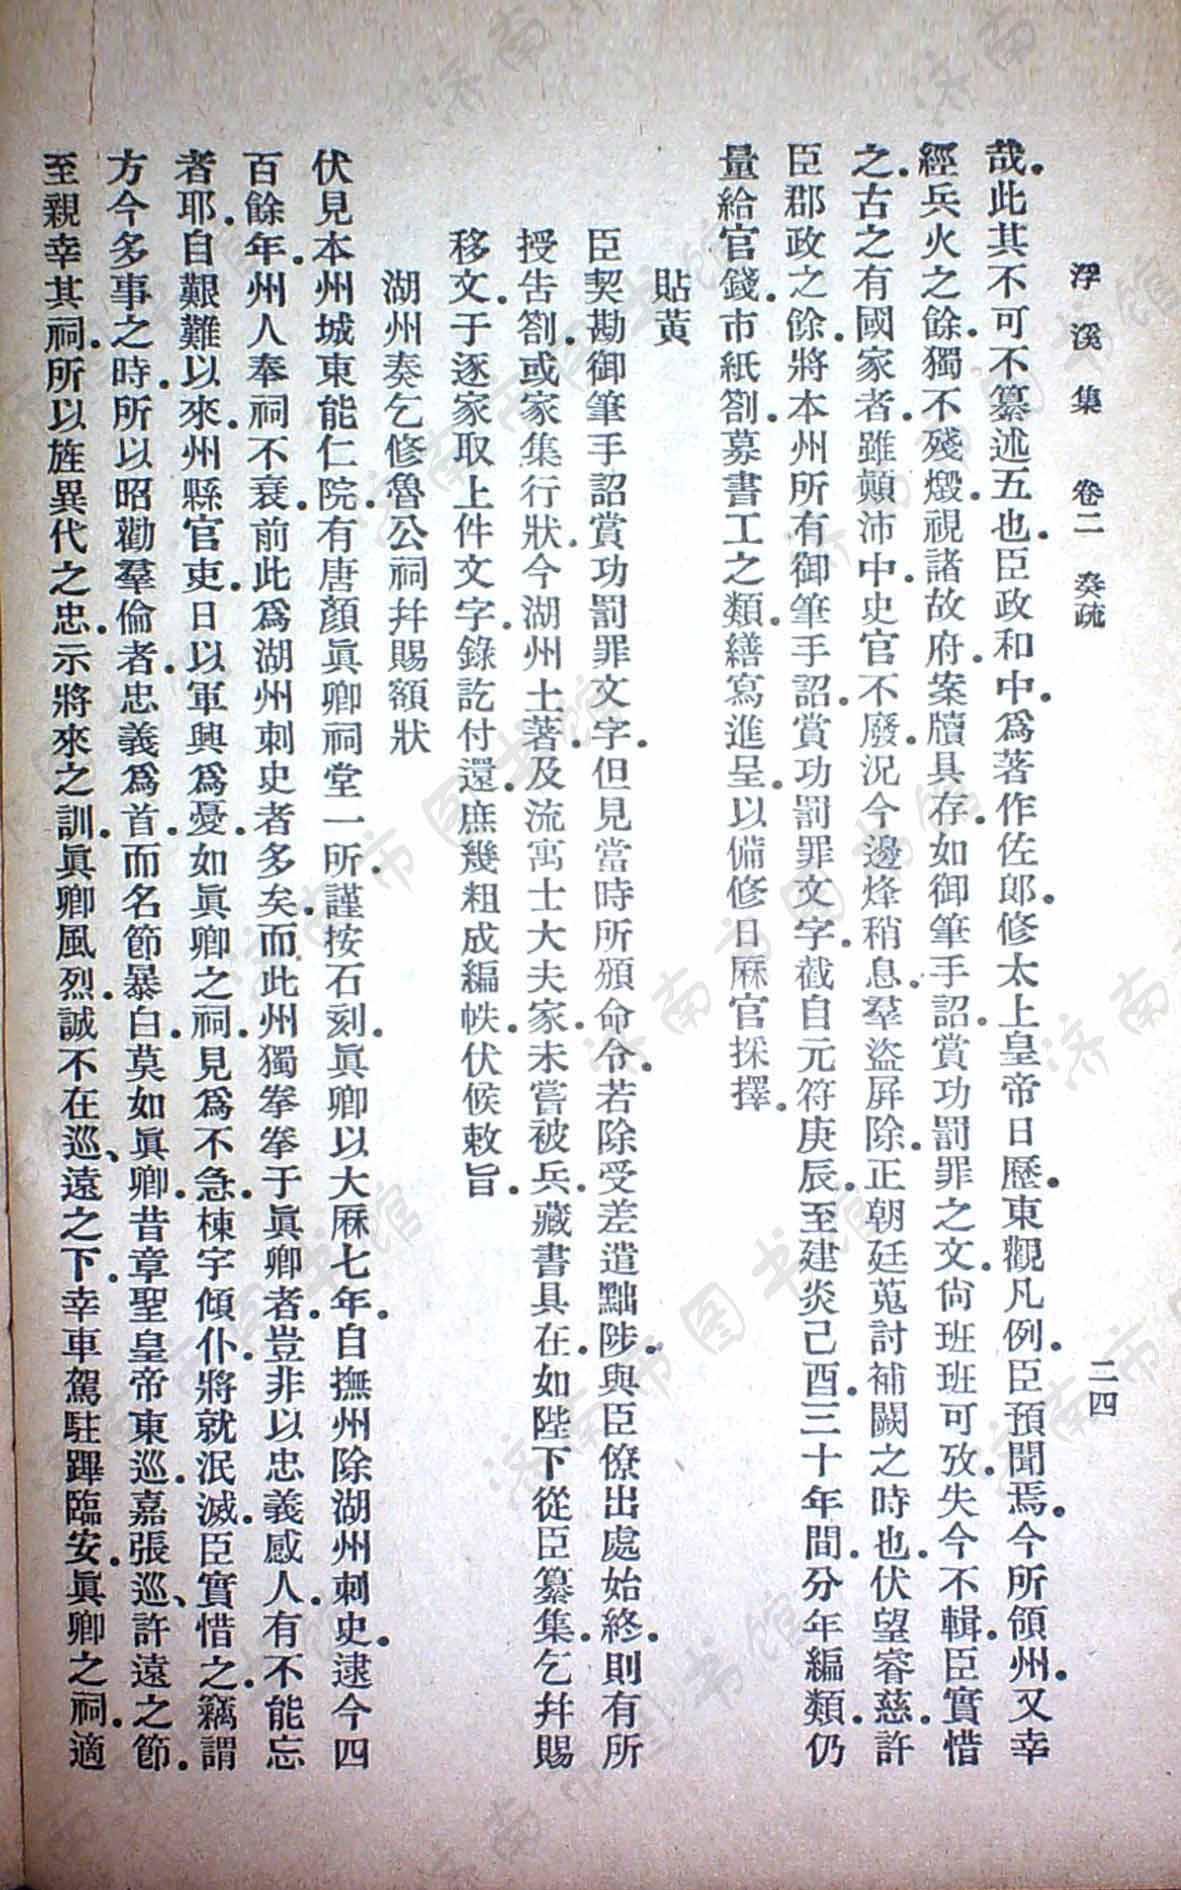 浮溪集　卷二　奏疏　二四
哉．此其不可不纂述五也．臣政和中．爲著作佐郎．修太上皇帝日歷．東觀凡例．臣預聞焉．今所領州．又幸
經兵火之餘．獨不殘燬．視諸故府．案牘具存．如御筆手詔．賞功罰罪之文．尙班班可攷．失今不輯．臣實惜
之．古之有國家者．雖顛沛中．史官不廢．況今邊烽稍息．羣盜屛除．正朝廷蒐討補闕之時也．伏望睿慈．許
臣郡政之餘．將本州所有御筆手詔．賞功罰罪文字．截自元符庚辰．至建炎己酉．三十年間．分年編類．仍
量給官錢．市紙劄．募書工之類．繕寫進呈．以備修日厤官採擇．
貼黃
臣契勘御筆手詔賞功罰罪文字．但見當時所頒命令．若除受差遣黜陟．與臣僚出處始終．則有所
授告劄．或家集行狀．今湖州土著．及流寓士大夫家．未嘗被兵．藏書具在．如陛下從臣纂集．乞幷賜
移文．于逐家取上件文字．錄訖付還．庶幾粗成編帙．伏候敕旨．
湖州奏乞修魯公祠幷賜額狀
伏見本州城東能仁院．有唐顏眞卿祠堂一所．謹按石刻．眞卿以大厤七年．自撫州除湖州刺史．逮今四
百餘年．州人奉祠不衰．前此爲湖州刺史者多矣．而此州獨拳拳于眞卿者．豈非以忠義感人．有不能忘
者耶．自艱難以來．州縣官吏．日以軍興爲憂．如眞卿之祠．見爲不急．棟宇傾仆．將就泯滅．臣實惜之．竊謂
方今多事之時．所以昭勸羣倫者．忠義爲首．而名節暴白．莫如眞卿．昔章聖皇帝東巡．嘉張巡、許遠之節．
至親幸其祠．所以旌異代之忠．示將來之訓．眞卿風烈．誠不在巡、遠之下．幸車駕駐蹕臨安．眞卿之祠．適